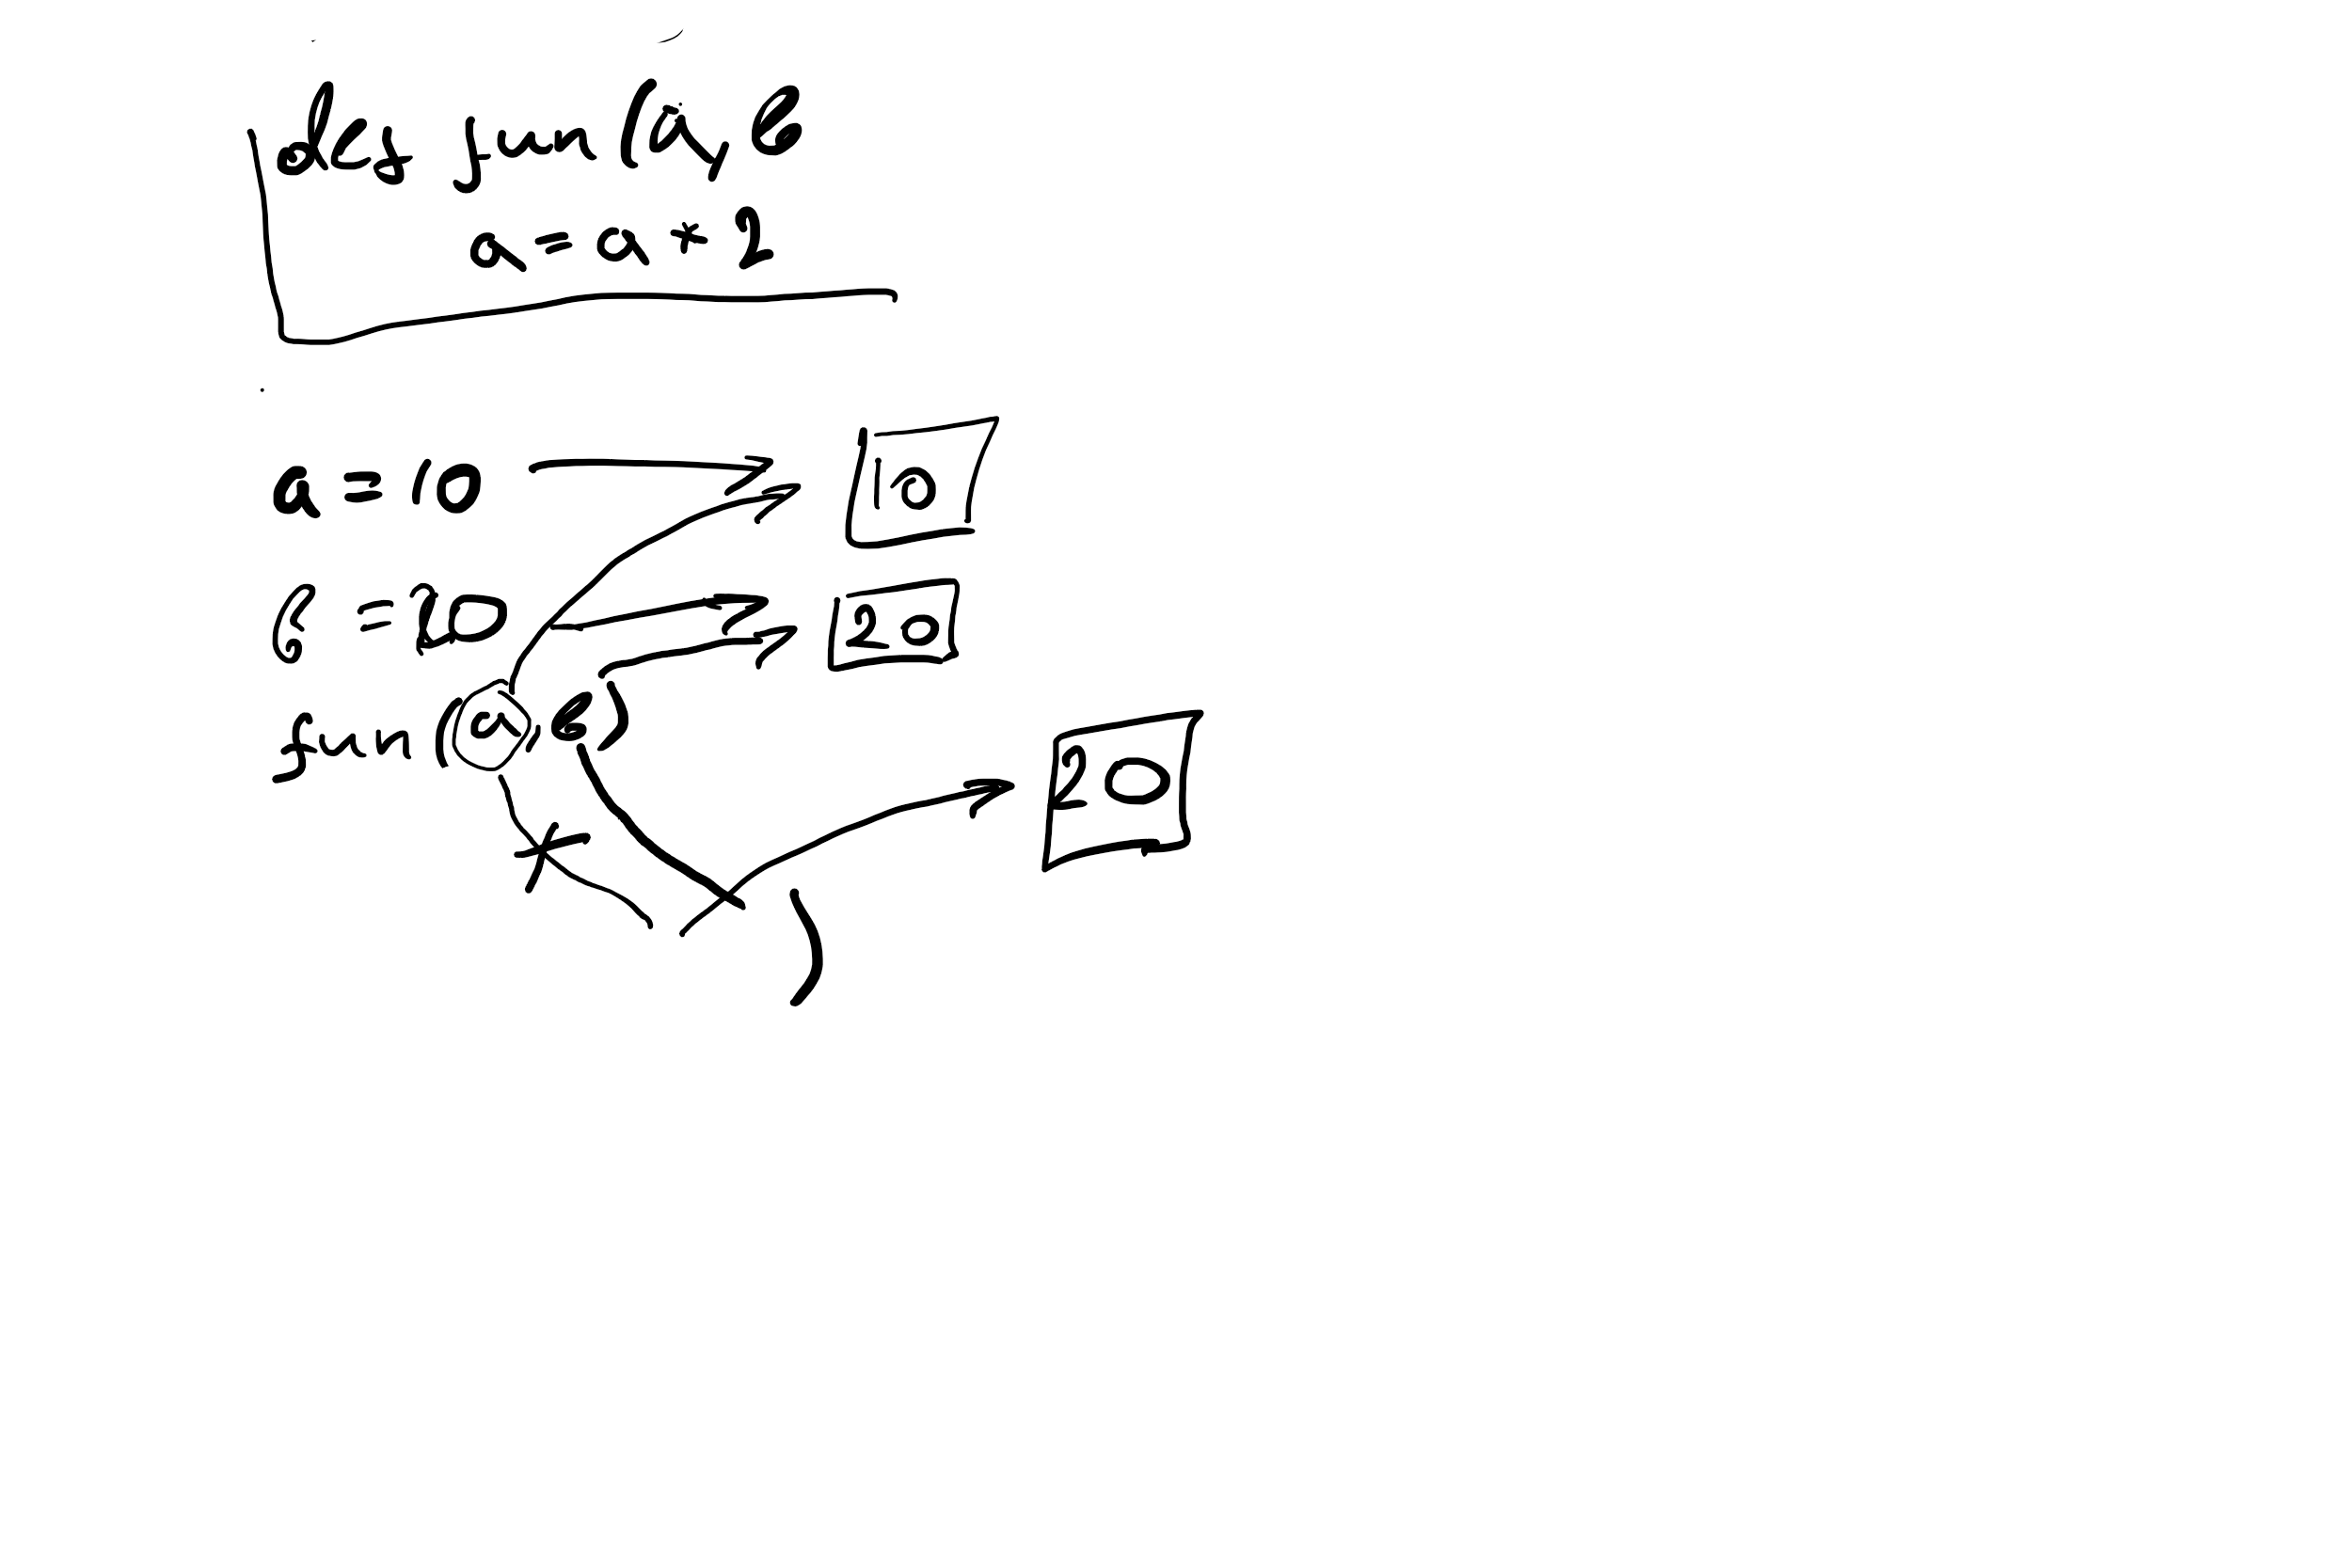 def fun(a, b
a = a * 2
a = 10
10
b = 20
20
fun(a, b)
20